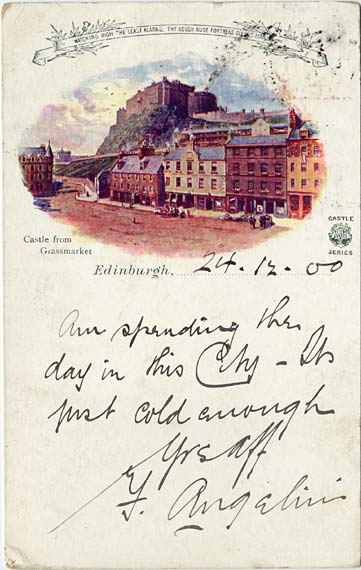 WATCHING HIGH THE LEAST ALARMS, THY ROUGH RUDE FORTRESS
Castle from
Grassmarket
CASTLE
SERIES
Edinburgh, 24.12.00
Am spending the
day in this City - Its
just cold enough
Yrs aff
F. Angelini